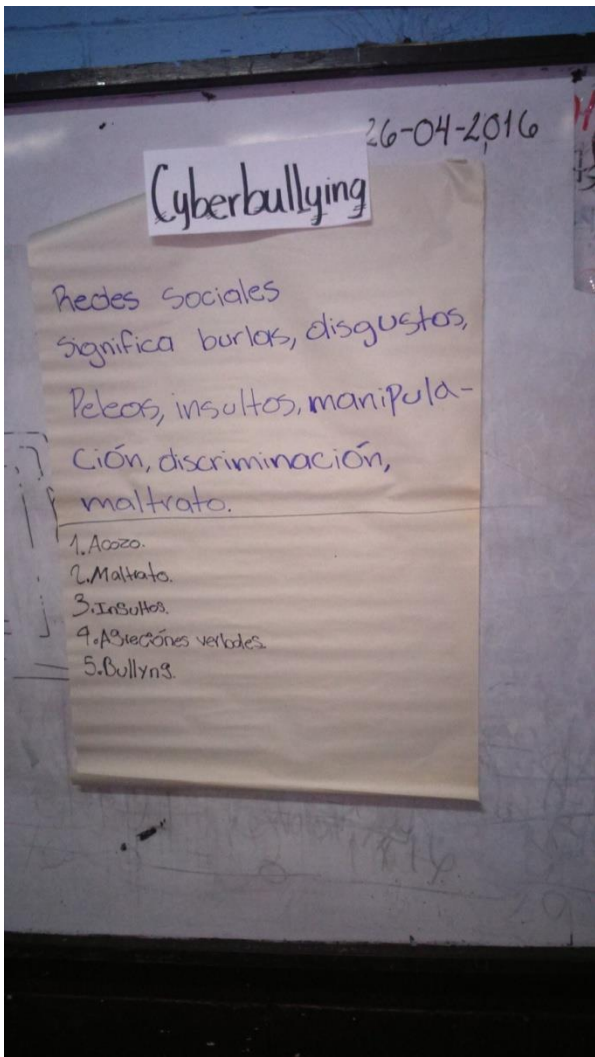 26-04-2016
Cyberbullying
Redes Sociales
significa burlas, disgustos,
Peleas, insultos, manipula-
ción, discriminación,
maltrato.
1. Acozo.
2. Maltrato.
3. Insultos.
4. Agreciónes verbales.
5. Bullyng.